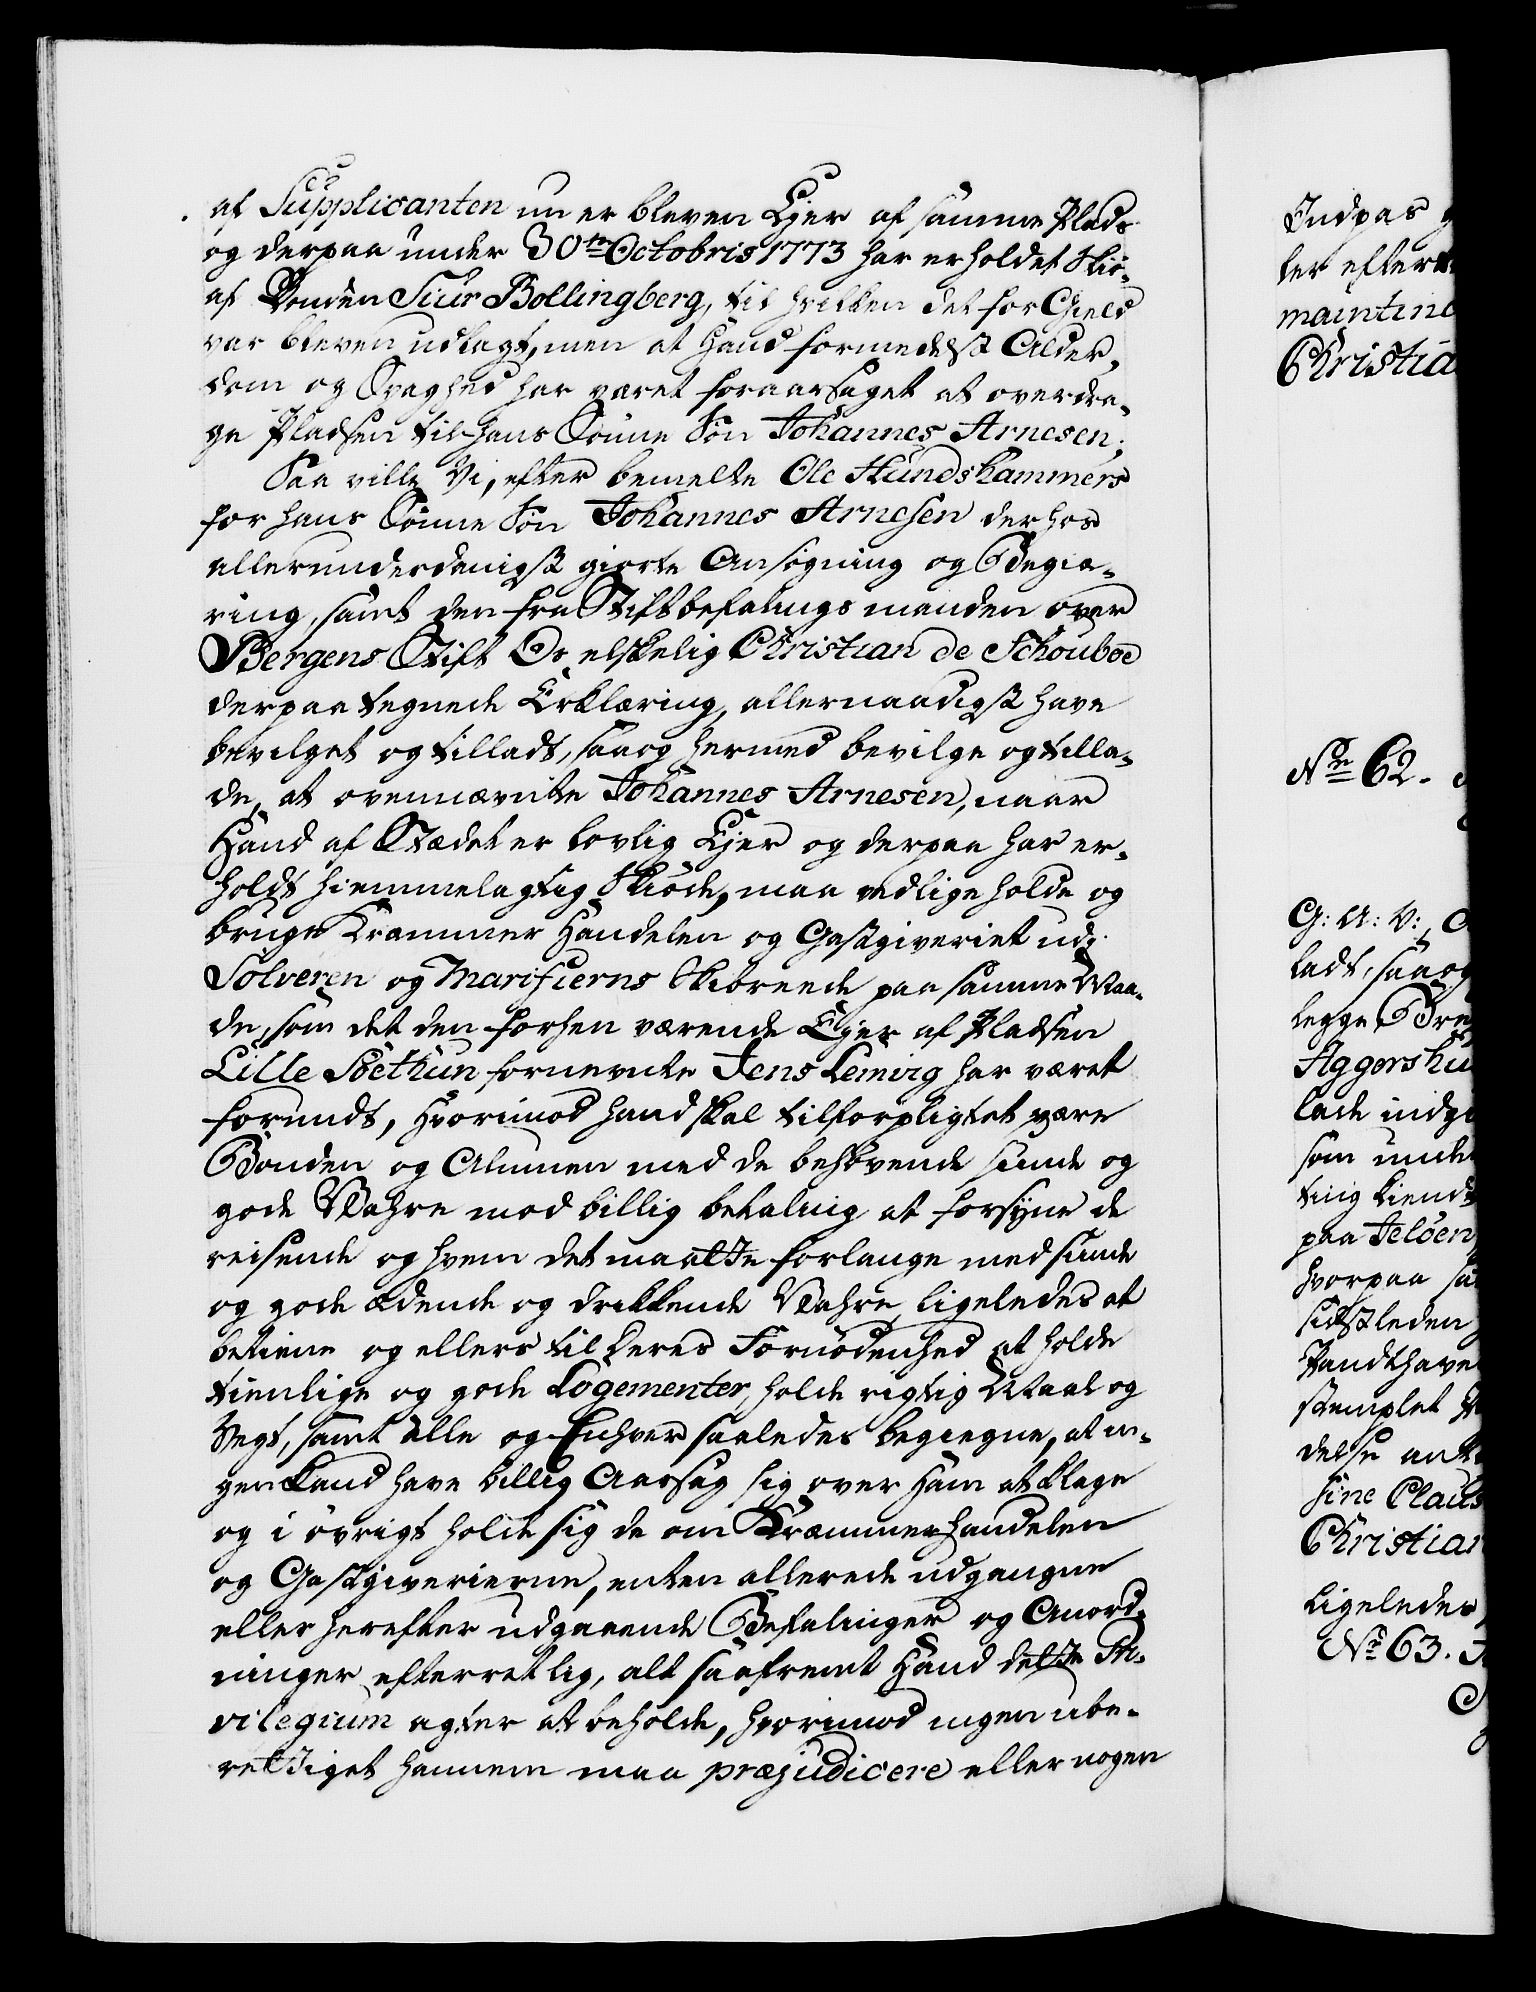 af Supplicanten nu er bleven Ejer af samme Plads
og derpaa under 30te Octobris 1773 har erholdet Skiø-
af Bonden Siur Bollingberg, til hvilken det for Gield
var bleven udlagt, men at Hand formedelst Alder-
dom og Svaghed har været foraarsaget at overdra-
ge Pladsen til hans Sønne Søn Johannes Arnesen;
Saa ville Vi, efter bemelte Ole Hundshammers
for hans Sønne Søn Johannes Arnesen derhos
allerunderdanigst giorte Ansøgning og Begiæ-
ring, samt den fra Stiftbefalingsmanden over
Bergens Stift Os elskelig Christian de Schouboe
derpaa tegnede Erklæring, allernaadigst have
bevilget og tilladt, saa og hermed bevilge og tilla-
de, at ovennævnte Johannes Arnesen, naar
Hand af Stædet er lovlig Ejer og derpaa har er-
holdt hiemmelagtig Skiøde, maa vedligeholde og
bruge Kræmmer Handelen og Gastgiveriet udj
Sølveren og Marifierns Skibreede paa samme Maa-
de, som det den forhen værende Ejer af Pladsen
Lille Soethun fornevnte Jens Lemvig har været
forundt, Hvorimod hand skal tilforpligtet være
Bonden og Almuen med de behøvende sunde og
gode Vahre mod billig betaling at forsyne de
reisende og hvem det maatte forlange med sunde
og gode ædende og drikkende Vahre, ligeledes at
betiene og ellers til deres Fornødenhed at holde
tienlige og gode Logementer, holde rigtig Maal og
Vegt, samt alle og Enhver saaledes begiegne, at in-
gen kand have billig Aarsag sig over Ham at klage
og i øvrigt holde sig de om Kræmmerhandelen
og Gastgiverierne, enten allerede udgangne
eller herefter udgaaende Befalinger og Anord-
ninger efterretlig, alt saafremt Hand dette Pri-
vilegium agter at beholde, hvorimod ingen ube-
rettiget hannem maa præjudicere eller nogen
Indpas
ter efter
maintine
Christia
No 62.
G: A: V:
ladt, saa og
legge
Aggershu
lade indg
som unde
ting kiendt
paa Jeløen
hvorpaa
sidstleden
Pandthave
stemplet
delse
sine Claus
Christian
Ligeledes
No 63.